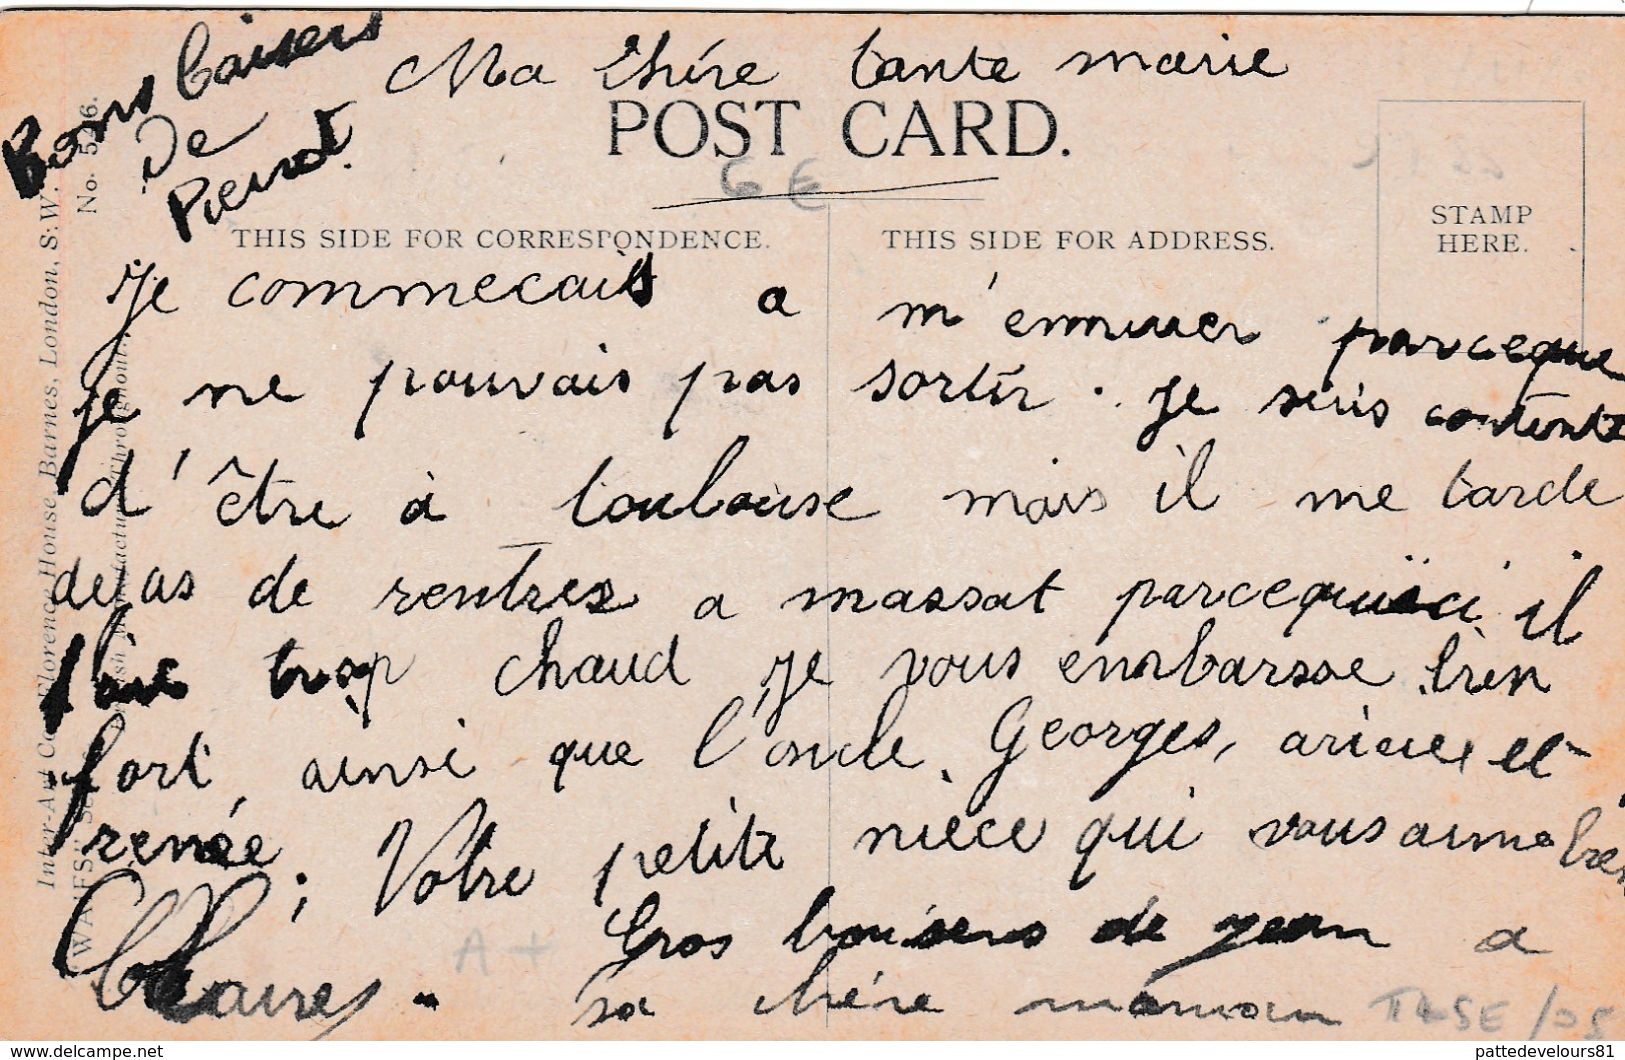 Bons baisers
de
Pierrot.
Ma chére tante marie
POST CARD.
6 €
THIS SIDE FOR CORRESPONDENCE.
THIS SIDE FOR ADDRESS.
STAMP
HERE.
Je commecais a m'ennuuer parceque
je ne pouvais pas sortir. Je suis contente
d'être à toulouse mais il me tarde
dejas de rentrer a massat parcequ'ici il
fait trop chaud je vous embarsse bien
fort ainsi que l'oncle Georges, et
renée; Votre petite niece qui vous aime bien
Claire.
Gros baisers de jean a
sa chére maman
A+
Inter-Art Co., Florence House, Barnes, London, S.W.
No. 5216.
"WAIFS" Series
British Manufacture Throughout.
pattedevelours81